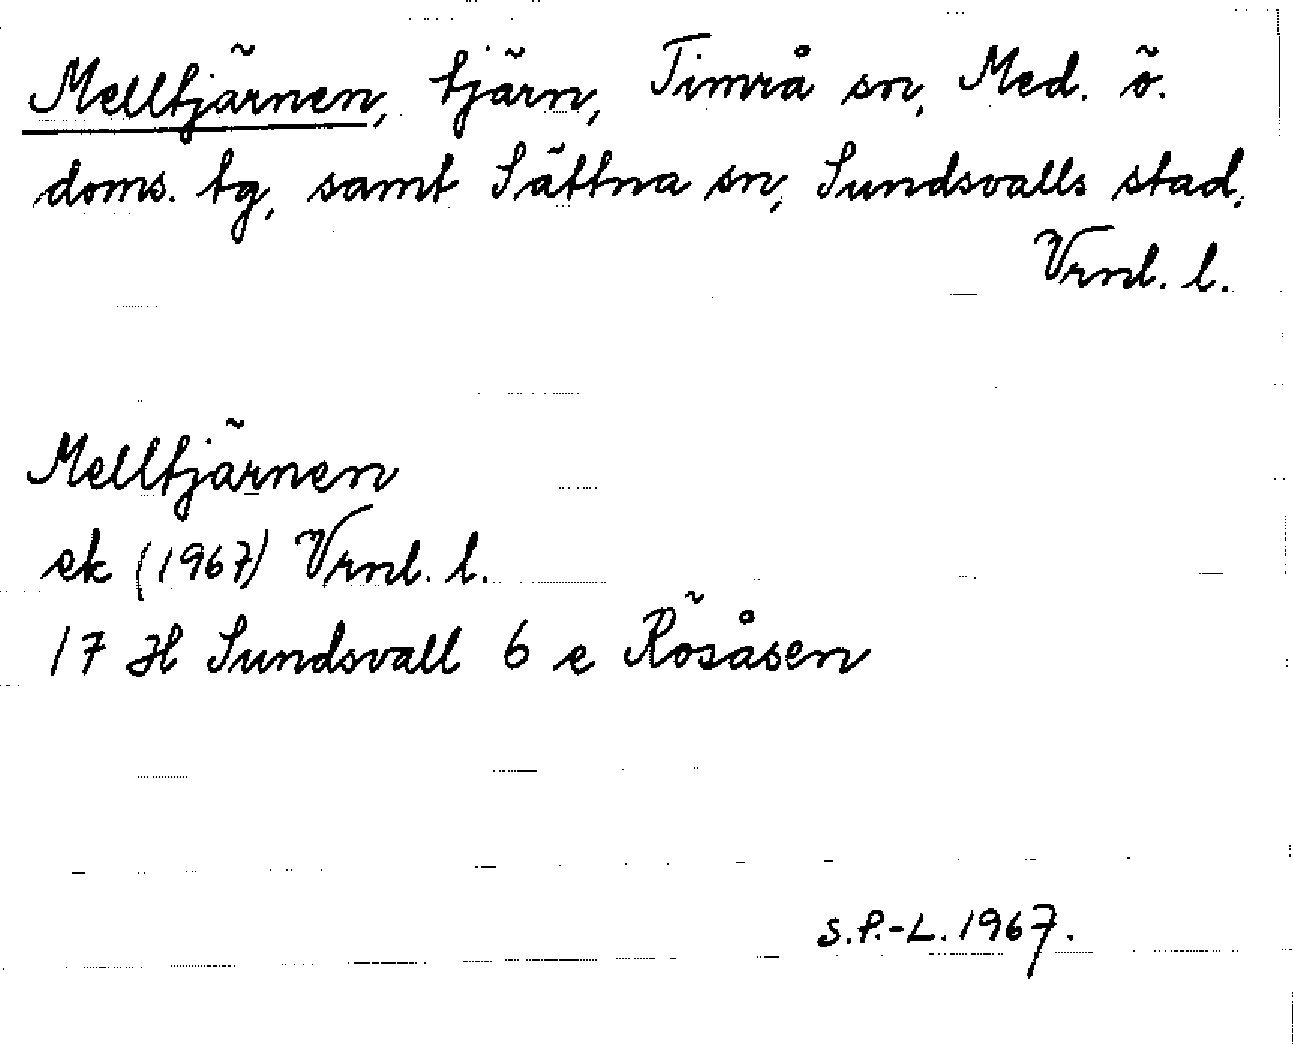 Melltjärnen, tjärn, Timrå sn, Med. ö.
doms. tg, samt Sättna sn, Sundsvalls stad,
Vrnl. l.
Melltjärnen
ek (1967) Vrnl. l.
17 H Sundsvall 6 e Rösåsen
S.P.-L. 1967.